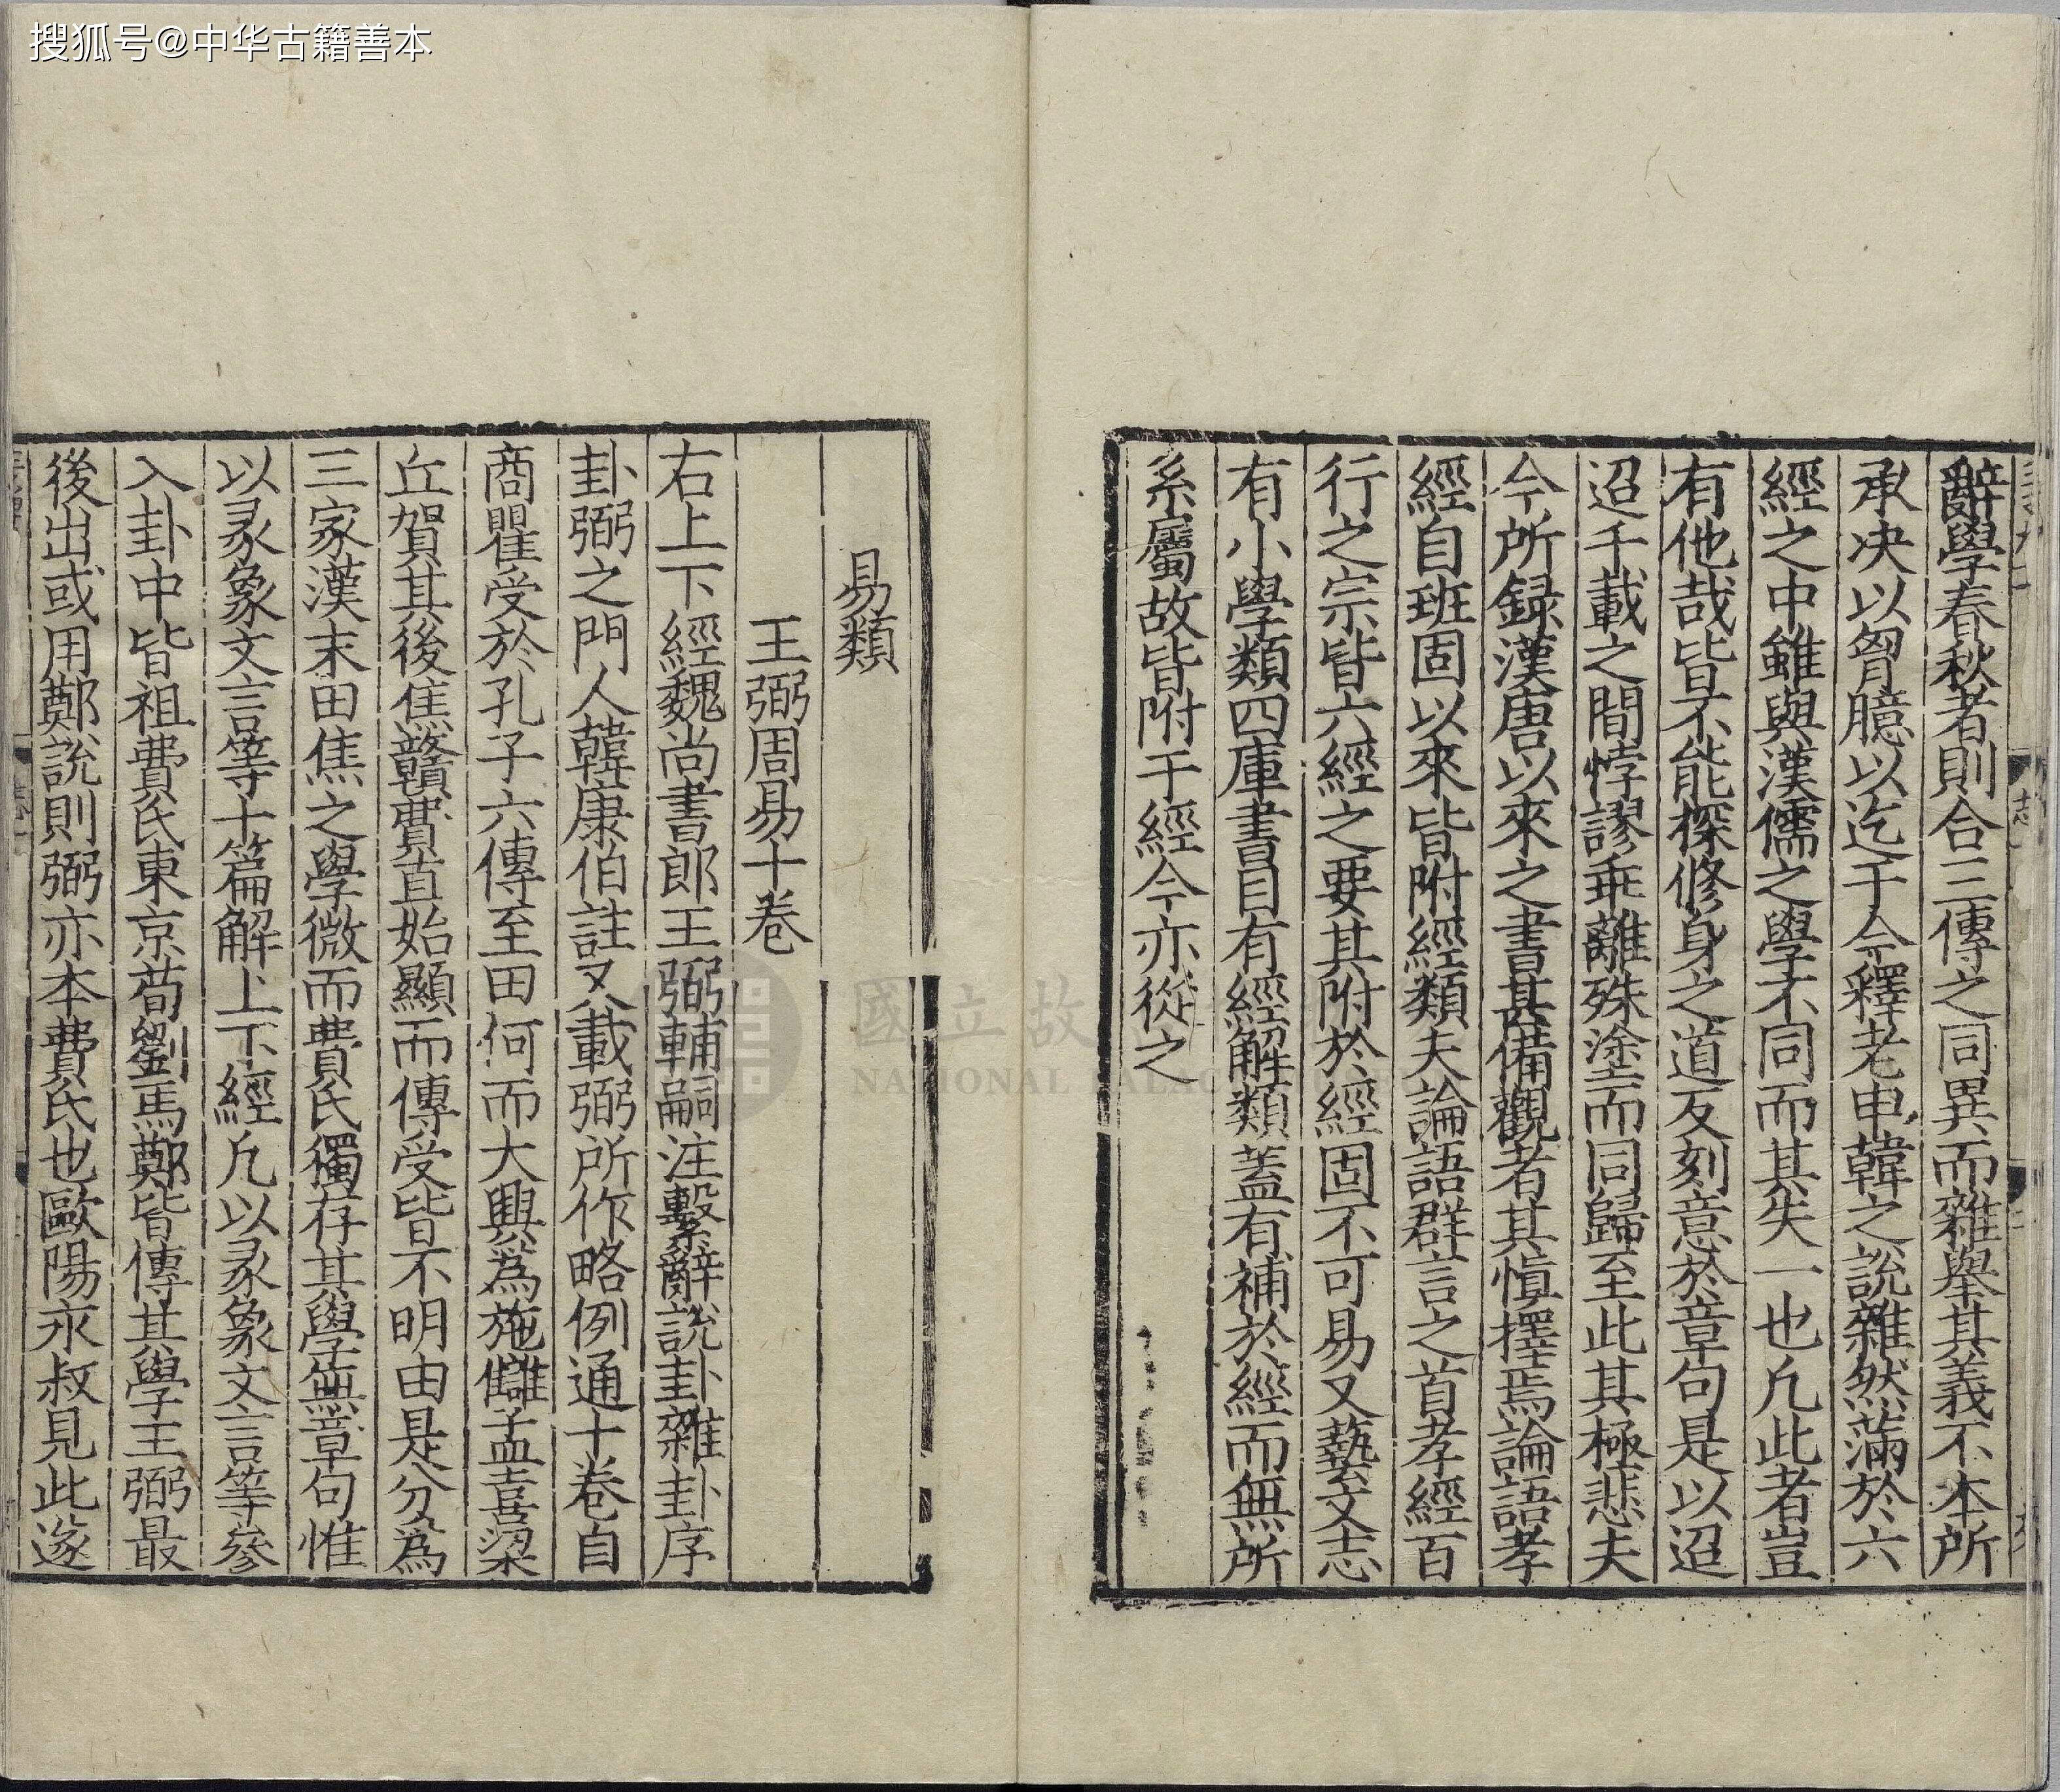 搜狐号@中华古籍善本
辭學春秋者則合三傳之同異而雜舉其義不本所
承决以胷臆以迄于今釋老申韓之說雜然滿於六
經之中雖與漢儒之學不同而其失一也凡此者豈
有他哉皆不能探修身之道反刻意於章句是以迢
迢千載之間悖謬乖離殊塗而同歸至此其極悲夫
今所録漢唐以來之書甚備觀者其慎擇焉論語孝
經自班固以來皆附經類夫論語群言之首孝經百
行之宗皆六經之要其附於經固不可易又藝文志
有小學類四庫書目有經解類蓋有補於經而無所
系屬故皆附于經今亦從之
易類
王弼周易十卷
右上下經魏尚書郎王弼輔嗣注繫辭說卦雜卦序
卦弼之門人韓康伯註又載弼所作略例通十卷自
商瞿受於孔子六傳至田何而大興為施讎孟喜梁
丘賀其後焦贛費直始顯而傳受皆不明由是分為
三家漢末田焦之學微而費氏獨存其學無章句惟
以彖象文言等十篇解上下經凡以彖象文言等參
入卦中皆祖費氏東京荀劉馬鄭皆傳其學王弼最
後出或用鄭說則弼亦本費氏也歐陽永叔見此遂
國立故
NATIONAL PALACE